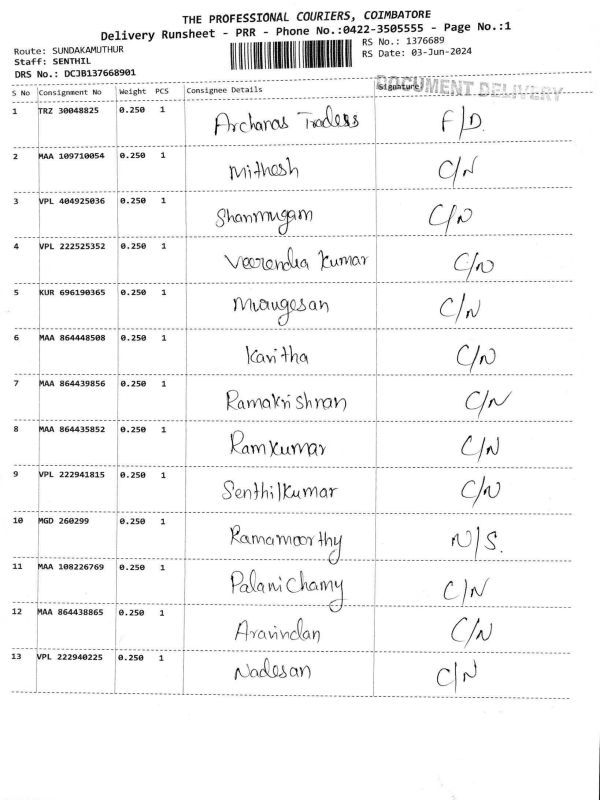 THE PROFESSIONAL COURIERS, COIMBATORE
Delivery Runsheet - PRR - Phone No.:0422-3505555 - Page No.:1
Route: SUNDAKAMUTHUR
RS No.: 1376689
Staff: SENTHIL
RS Date: 03-Jun-2024
DRS No.: DCJB137668901
DOCUMENT DELIVERY
S No Consignment No Weight PCS Consignee Details Signature
1 TRZ 30048825 0.250 1 Archanas Tradess F/D.
2 MAA 109710054 0.250 1 Mithesh C/N
3 VPL 404925036 0.250 1 Shanmugam C/N
4 VPL 222525352 0.250 1 Veerendra Kumar C/N
5 KUR 696190365 0.250 1 C/N
6 MAA 864448508 0.250 1 Kavitha C/N
7 MAA 864439856 0.250 1 Ramakrishnan C/N
8 MAA 864435852 0.250 1 Ramkumar C/N
9 VPL 222941815 0.250 1 Senthilkumar C/N
10 MGD 260299 0.250 1 Ramamoorthy N/S.
11 MAA 108226769 0.250 1 Palanichamy C/N
12 MAA 864438865 0.250 1 Aravindan C/N
13 VPL 222940225 0.250 1 Nadesan C/N